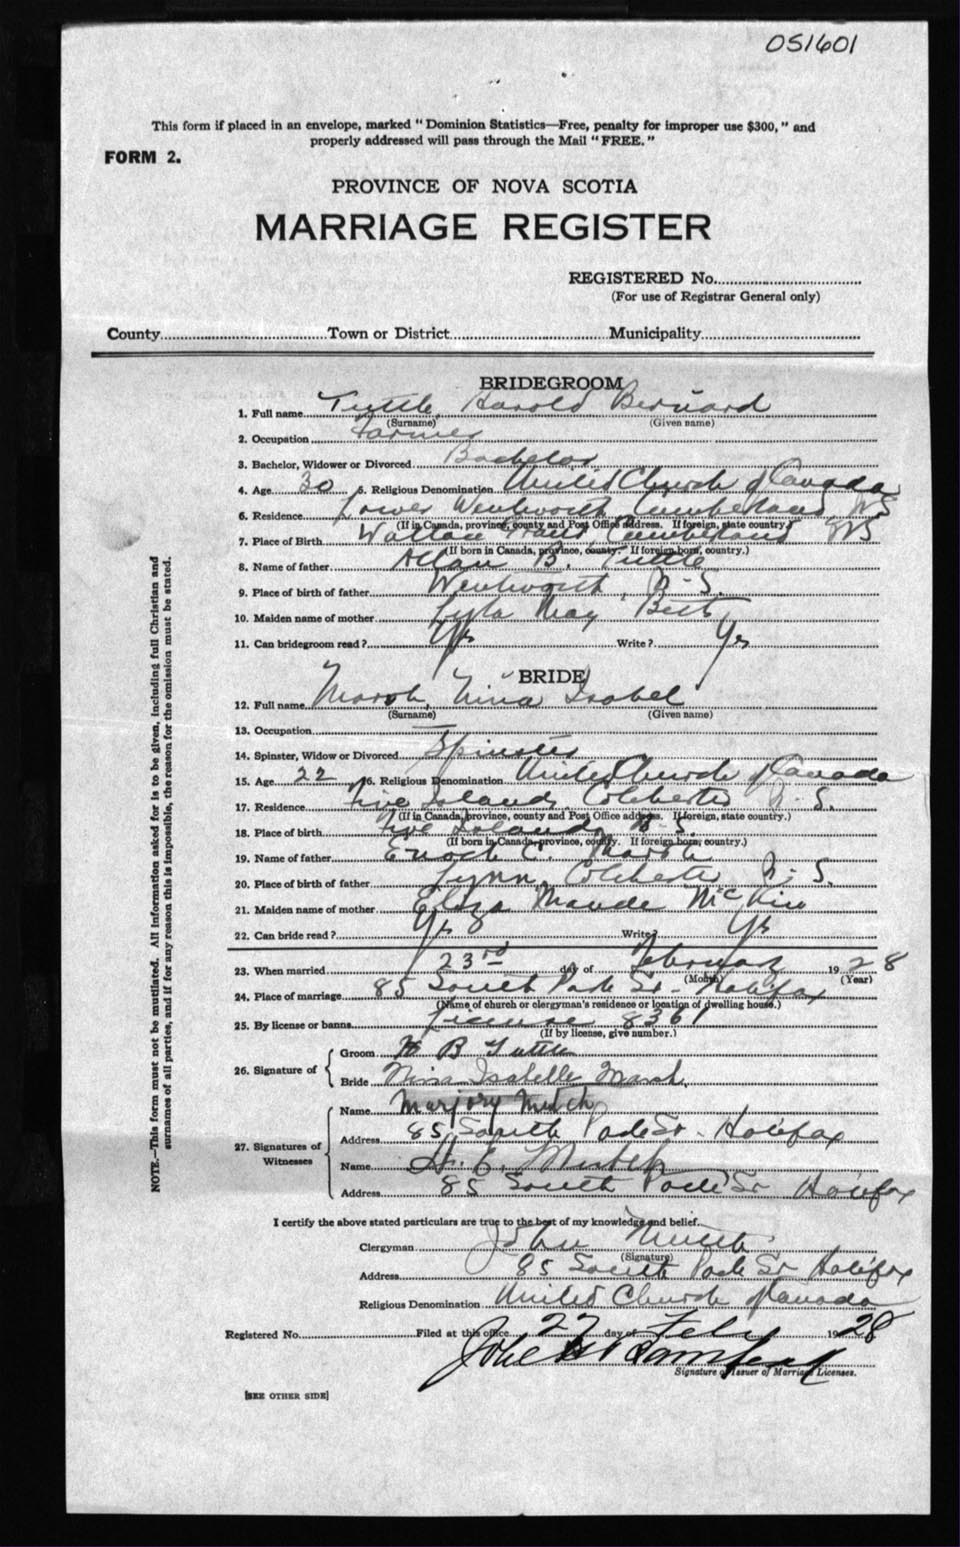 051601
This form if placed in an envelope, marked "Dominion Statistics—Free, penalty for improper use $300," and
properly addressed will pass through the Mail "FREE."
FORM 2.
PROVINCE OF NOVA SCOTIA
MARRIAGE REGISTER
REGISTERED No.
(For use of Registrar General only)
County Town or District Municipality
BRIDEGROOM
1. Full name Tuttle, Harold Bernard
(Surname) (Given name)
2. Occupation Farmer
3. Bachelor, Widower or Divorced Bachelor
4. Age 30 5. Religious Denomination United Church of Canada
6. Residence Lower Wentworth Cumberland N S
(If in Canada, province, county and Post Office address. If foreign, state country.)
7. Place of Birth Wallace Cumberland NS
(If born in Canada, province, county. If foreign born, country.)
8. Name of father Allan B. Tuttle
9. Place of birth of father Wentworth, N-S.
10. Maiden name of mother Lyla May Betts
11. Can bridegroom read? Yes Write? Yes
BRIDE
12. Full name Marsh, Nina Isobel
(Surname) (Given name)
13. Occupation
14. Spinster, Widow or Divorced Spinster
15. Age 22 16. Religious Denomination United Church of Canada
17. Residence Five Islands, Colchester N-S.
(If in Canada, province, county and Post Office address. If foreign, state country.)
18. Place of birth Five Islands N-S.
(If born in Canada, province, county. If foreign born, country.)
19. Name of father Enoch C. Marsh
20. Place of birth of father Lynn, Colchester N-S.
21. Maiden name of mother Eliza Maude McKim
22. Can bride read? Yes Write? Yes
23. When married 23rd day of February 1928
(Month) (Year)
24. Place of marriage 85 South Park St- Halifax
(Name of church or clergyman's residence or location of dwelling house.)
25. By license or banns License 8361
(If by license, give number.)
26. Signature of
Groom H B Tuttle
Bride Nina Isabelle Marsh.
27. Signatures of Witnesses
Name Marjory Mutch
Address 85 South Park St- Halifax
Name H. E. Mutch
Address 85 South Park St Halifax
I certify the above stated particulars are true to the best of my knowledge and belief.
Clergyman John Mutch
(Signature)
Address 85 South Park St Halifax
Religious Denomination United Church of Canada
Registered No. Filed at this office 27 day of Feby 1928
John
Signature of Issuer of Marriage Licenses.
[SEE OTHER SIDE]
NOTE.—This form must not be mutilated. All information asked for is to be given, including full Christian and
surnames of all parties, and if for any reason this is impossible, the reason for the omission must be stated.